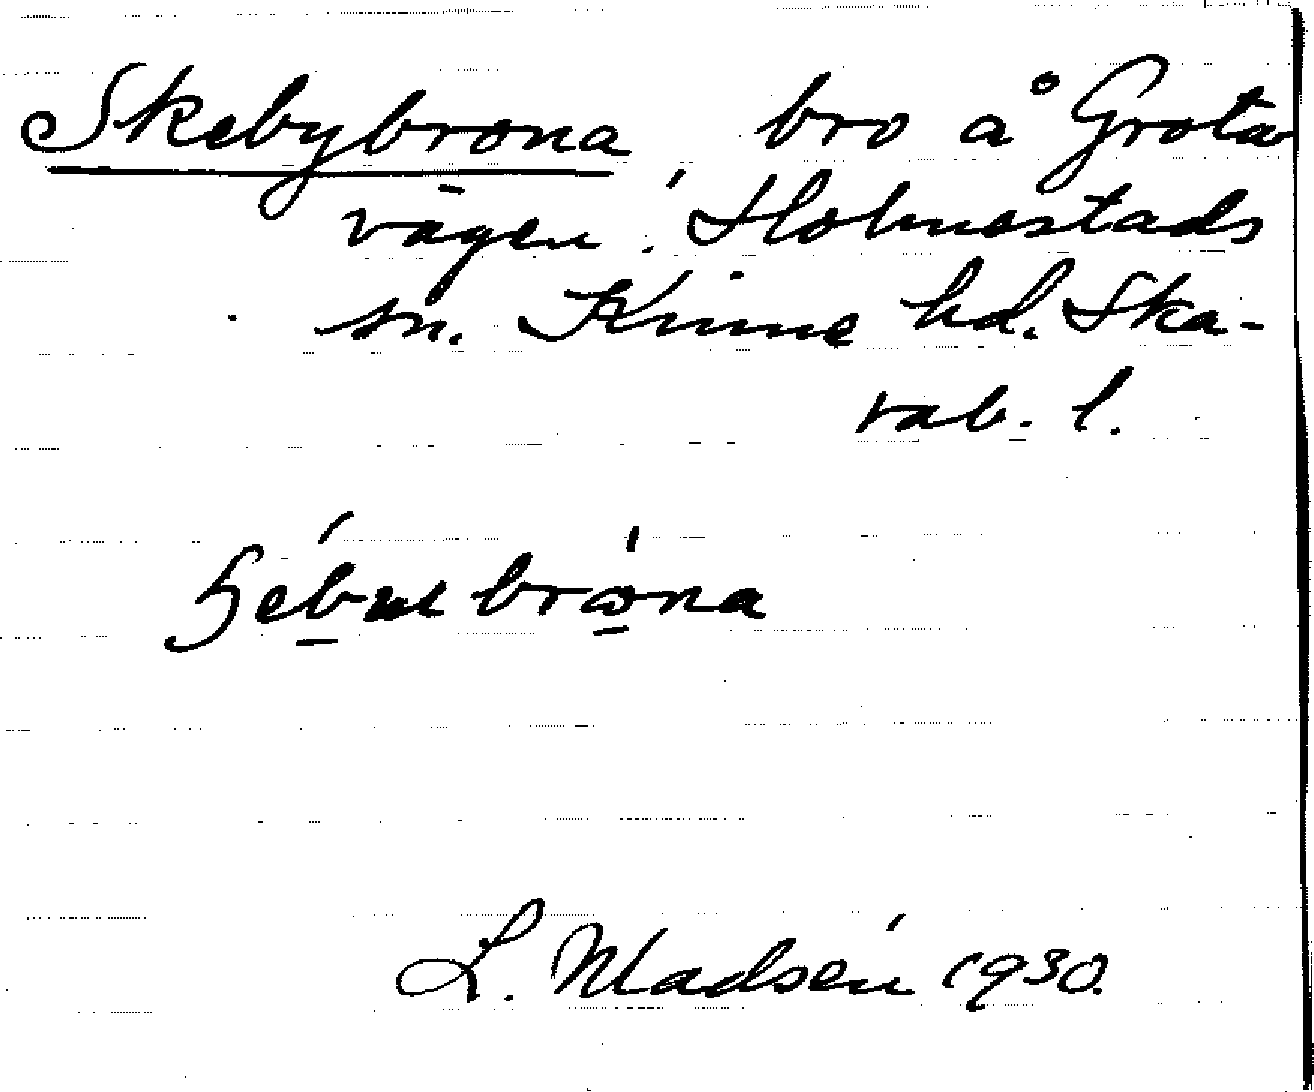 Skebybrona bro å Grota
vägen i Holmestads
sn. Kinne hd. Ska-
rab. l.
L. Madsén 1930.